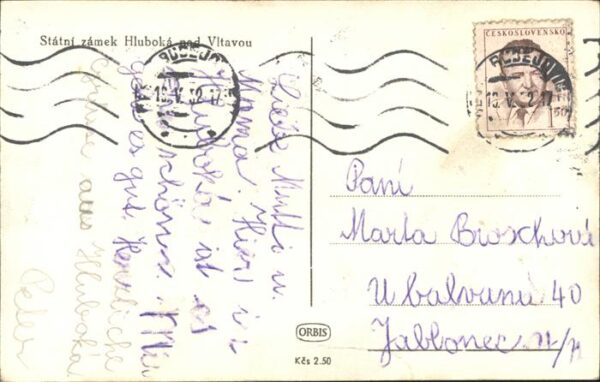 Státní zámek Hluboká nad Vltavou
Liebe Mutti u.
Mama. Hier i.
Hluboká ist es
sehr schön. Mir
geht es gut. Herzliche
Grüsse aus Hluboká
Peter
ORBIS
Kčs 2.50
ČESKOSLOVENSKO
1 50
BUDĚJOVICE
Paní
Marta Broschová
U balvanu 40
Jablonec n/N